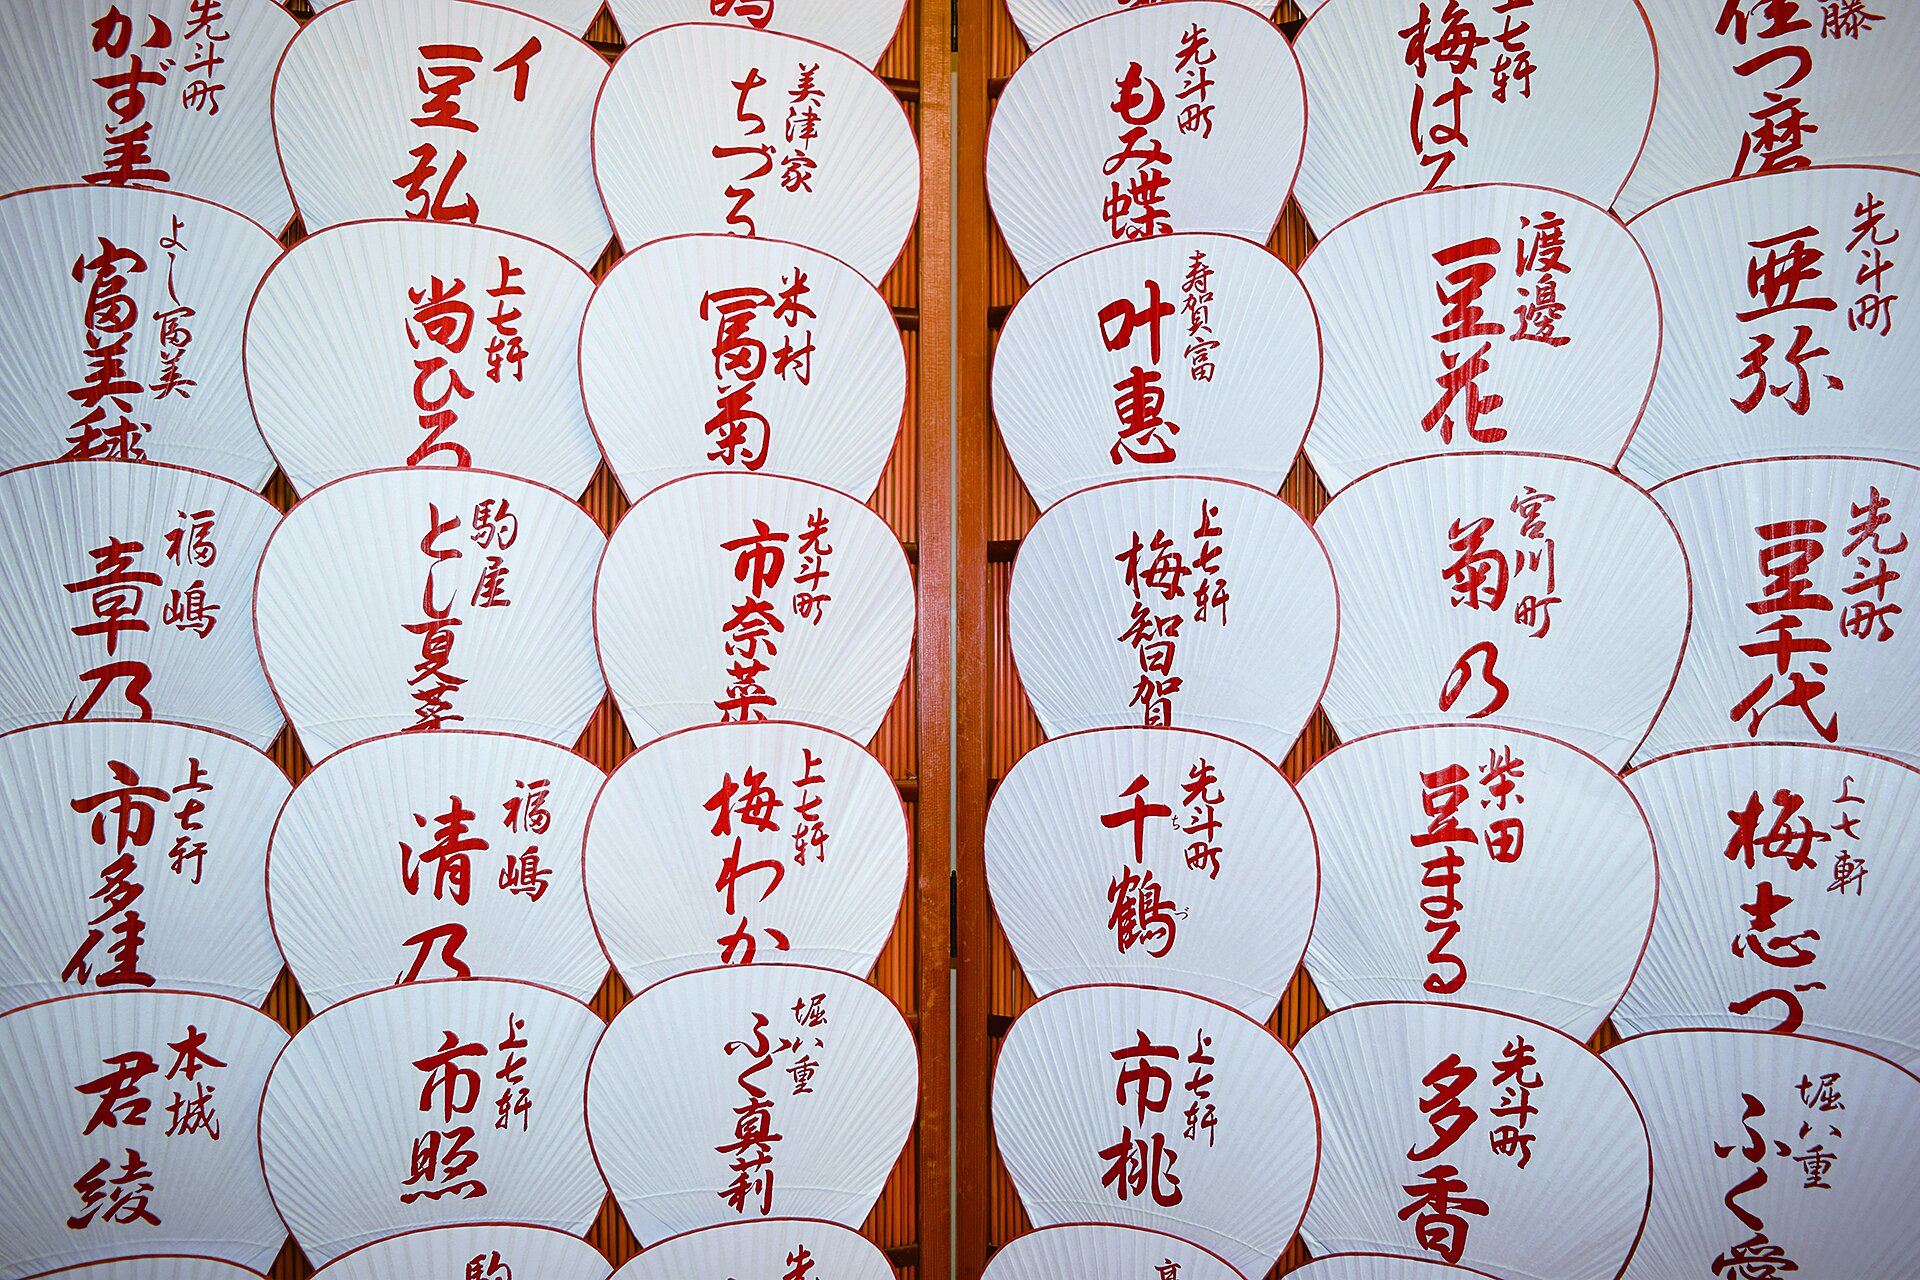 先斗町
かず美
イ
豆弘
美津家
ちづる
先斗町
もみ蝶
上七軒
梅は
つ磨
よし富美
富美球
上七軒
尚ひろ
米村
冨菊
寿賀富
叶惠
渡邊
豆花
先斗町
亜弥
福嶋
章乃
駒屋
とし夏菜
先斗町
市奈菜
上七軒
梅智賀
宮川町
菊乃
先斗町
豆千代
上七軒
市多佳
福嶋
清乃
上七軒
梅わか
先斗町
千鶴
ちづ
柴田
豆まる
上七軒
梅志づ
本城
君綾
上七軒
市照
堀八重
ふく真莉
上七軒
市桃
先斗町
多香
堀八重
ふく愛
駒
先